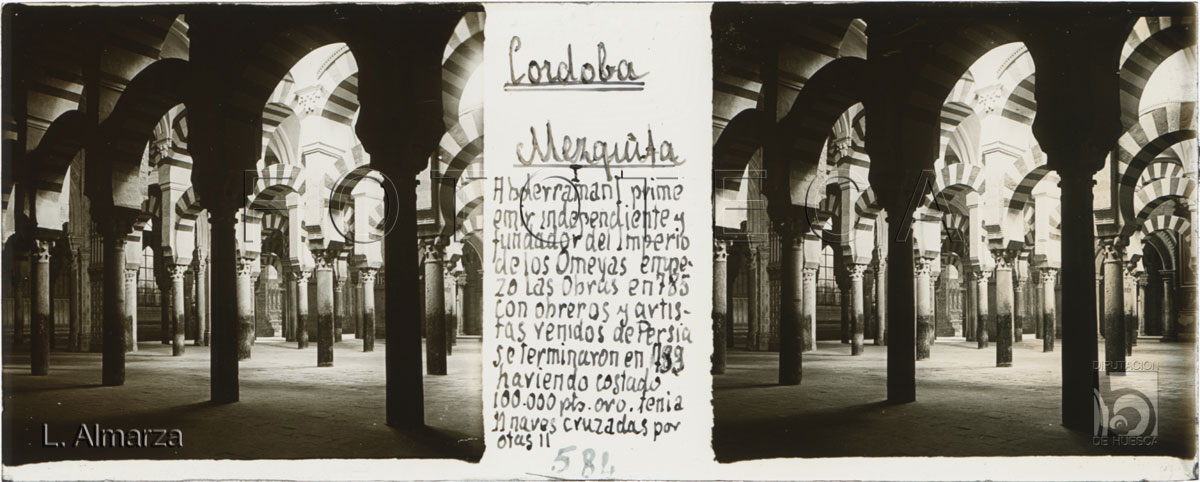 Cordoba
Mezquita
Abderraman I prime
emir independiente y
fundador del Imperio
de los Omeyas empe-
zo las Obras en 785
con obreros y artis-
tas venidos de Persia
se terminaron en 799
haviendo costado
100.000 pts. oro. tenia
11 naves cruzadas por
otas 11
584
FOTOTECA
L. Almarza
DIPUTACIÓN
DE HUESCA